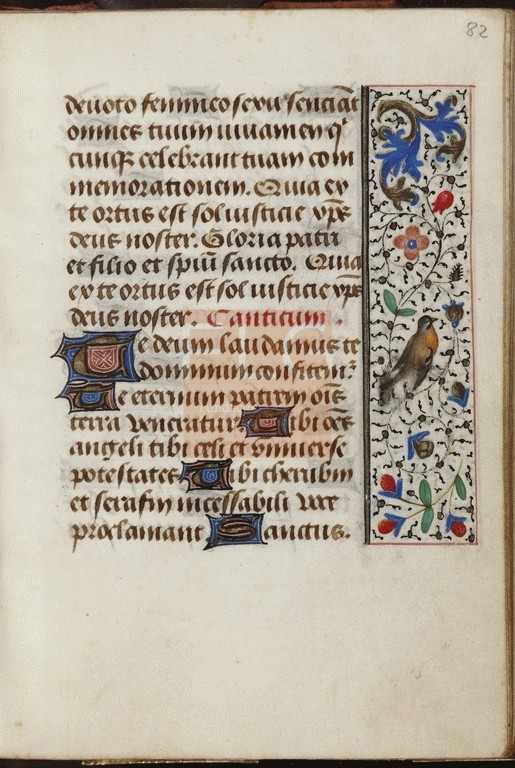 82
deuoto femineo sexu senciāt
omnes tuum iuuamen q̅
cunqꝫ celebrant tuam com
memorationem. Quia ex
te ortus est sol iusticie xp̅s
deus noster. Gloria patri
et filio et spiū sancto. Quia
ex te ortus est sol iusticie xp̅s
deus noster. Canticum.
Te deum laudamus te
dominum confitem᷑
Te eternum patrem oīs
terra veneratur Tibi oēs
angeli tibi celi et vniuerse
potestates Tibi cherubin
et serafin incessabili voce
proclamant Sanctus.